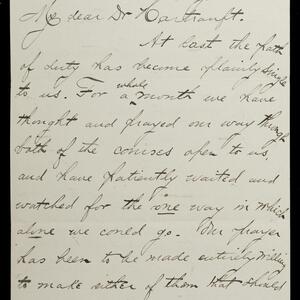 My dear Dr Hartranft.
At last the path
of duty has become plainly single
to us. For a whole month we have
thought and prayed our way through
both of the courses open to us,
and have patiently waited and
watched for the one way in which
alone we could go. Our prayer
has been to be made entirely willing
to make either of them that should